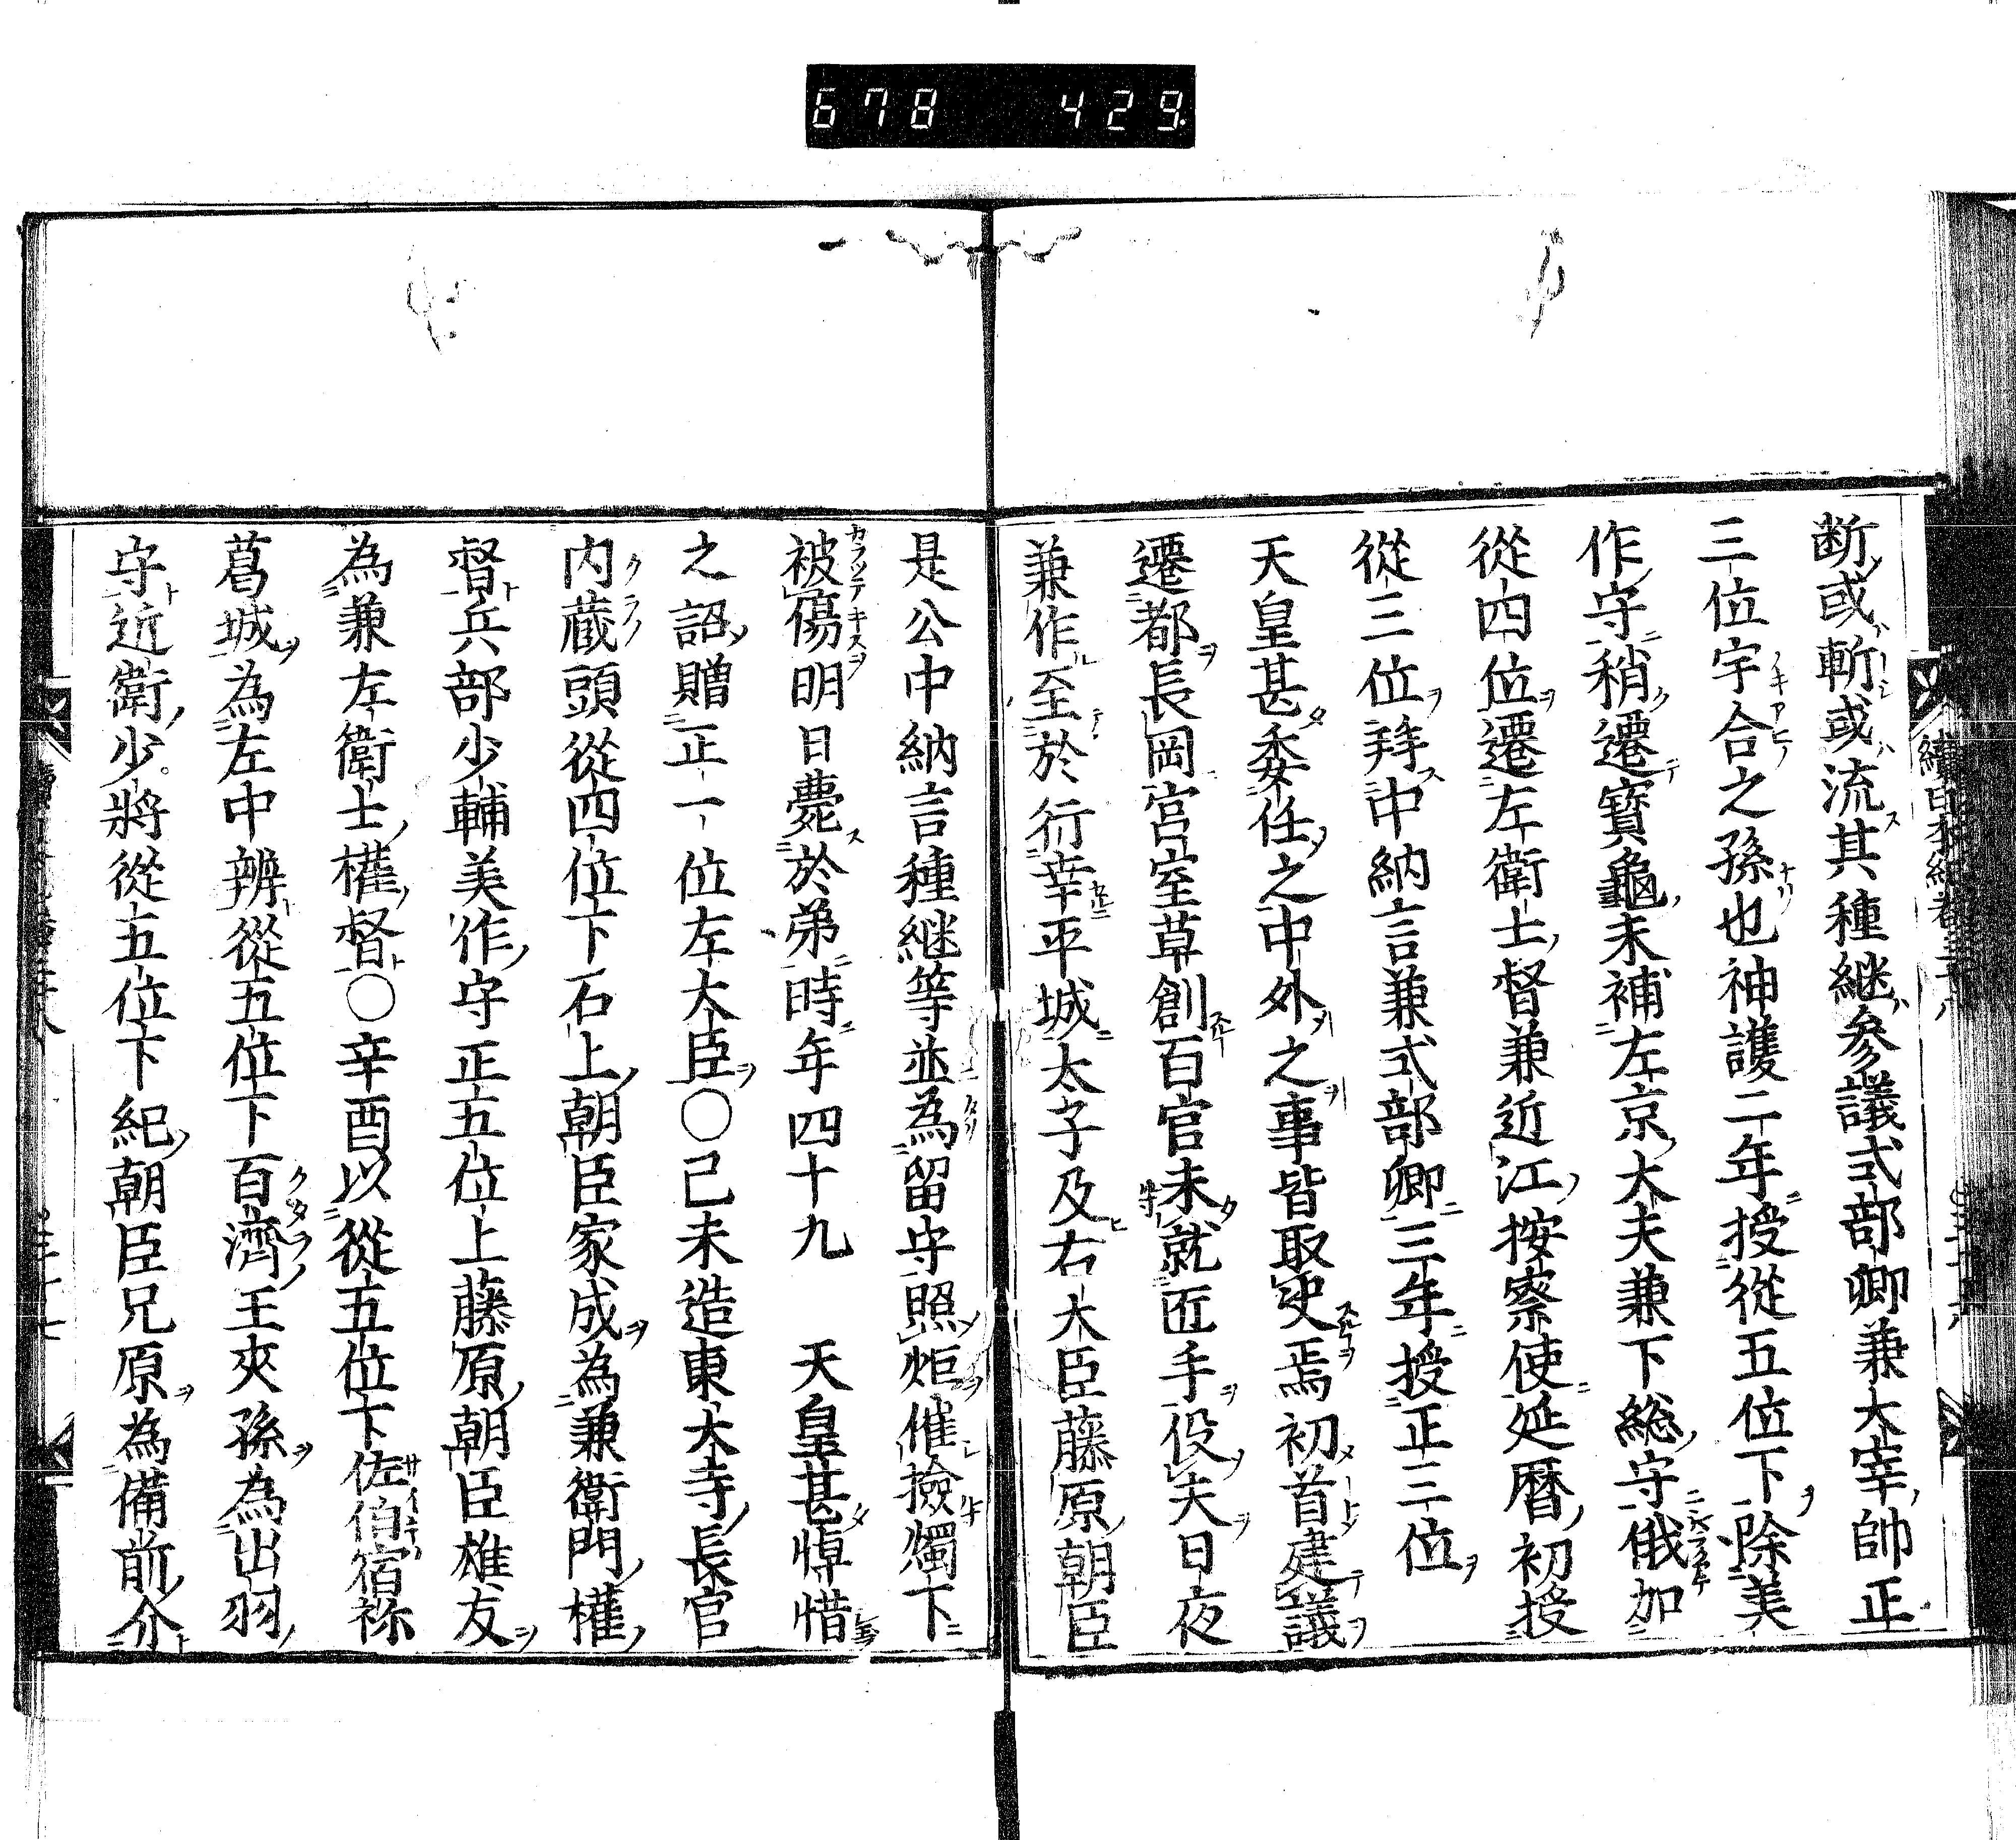 678 429
断或斬或流其種継參議式部卿兼大宰帥正
三位宇合之孫也神護二年授從五位下除美
作守稍遷寳龜末補左京大夫兼下総守俄加
從四位遷左衛士督兼近江按察使延暦初授
從三位拜中納言兼式部卿三年授正三位
天皇甚委任之中外之事皆取决焉初首建議
遷都長岡宮室草創百官未就匠手役夫日夜
兼作至於行幸平城太子及右大臣藤原朝臣
是公中納言種継等並為留守照炬催撿燭下
被傷明日薨於弟時年四十九 天皇甚悼惜
之詔贈正一位左大臣○己未造東大寺長官
内蔵頭從四位下石上朝臣家成為兼衛門權
督兵部少輔美作守正五位上藤原朝臣雄友
為兼左衛士權督○辛酉以從五位下佐伯宿祢
葛城為左中辨從五位下百濟王夾孫為出羽
守近衛少將從五位下紀朝臣兄原為備前介